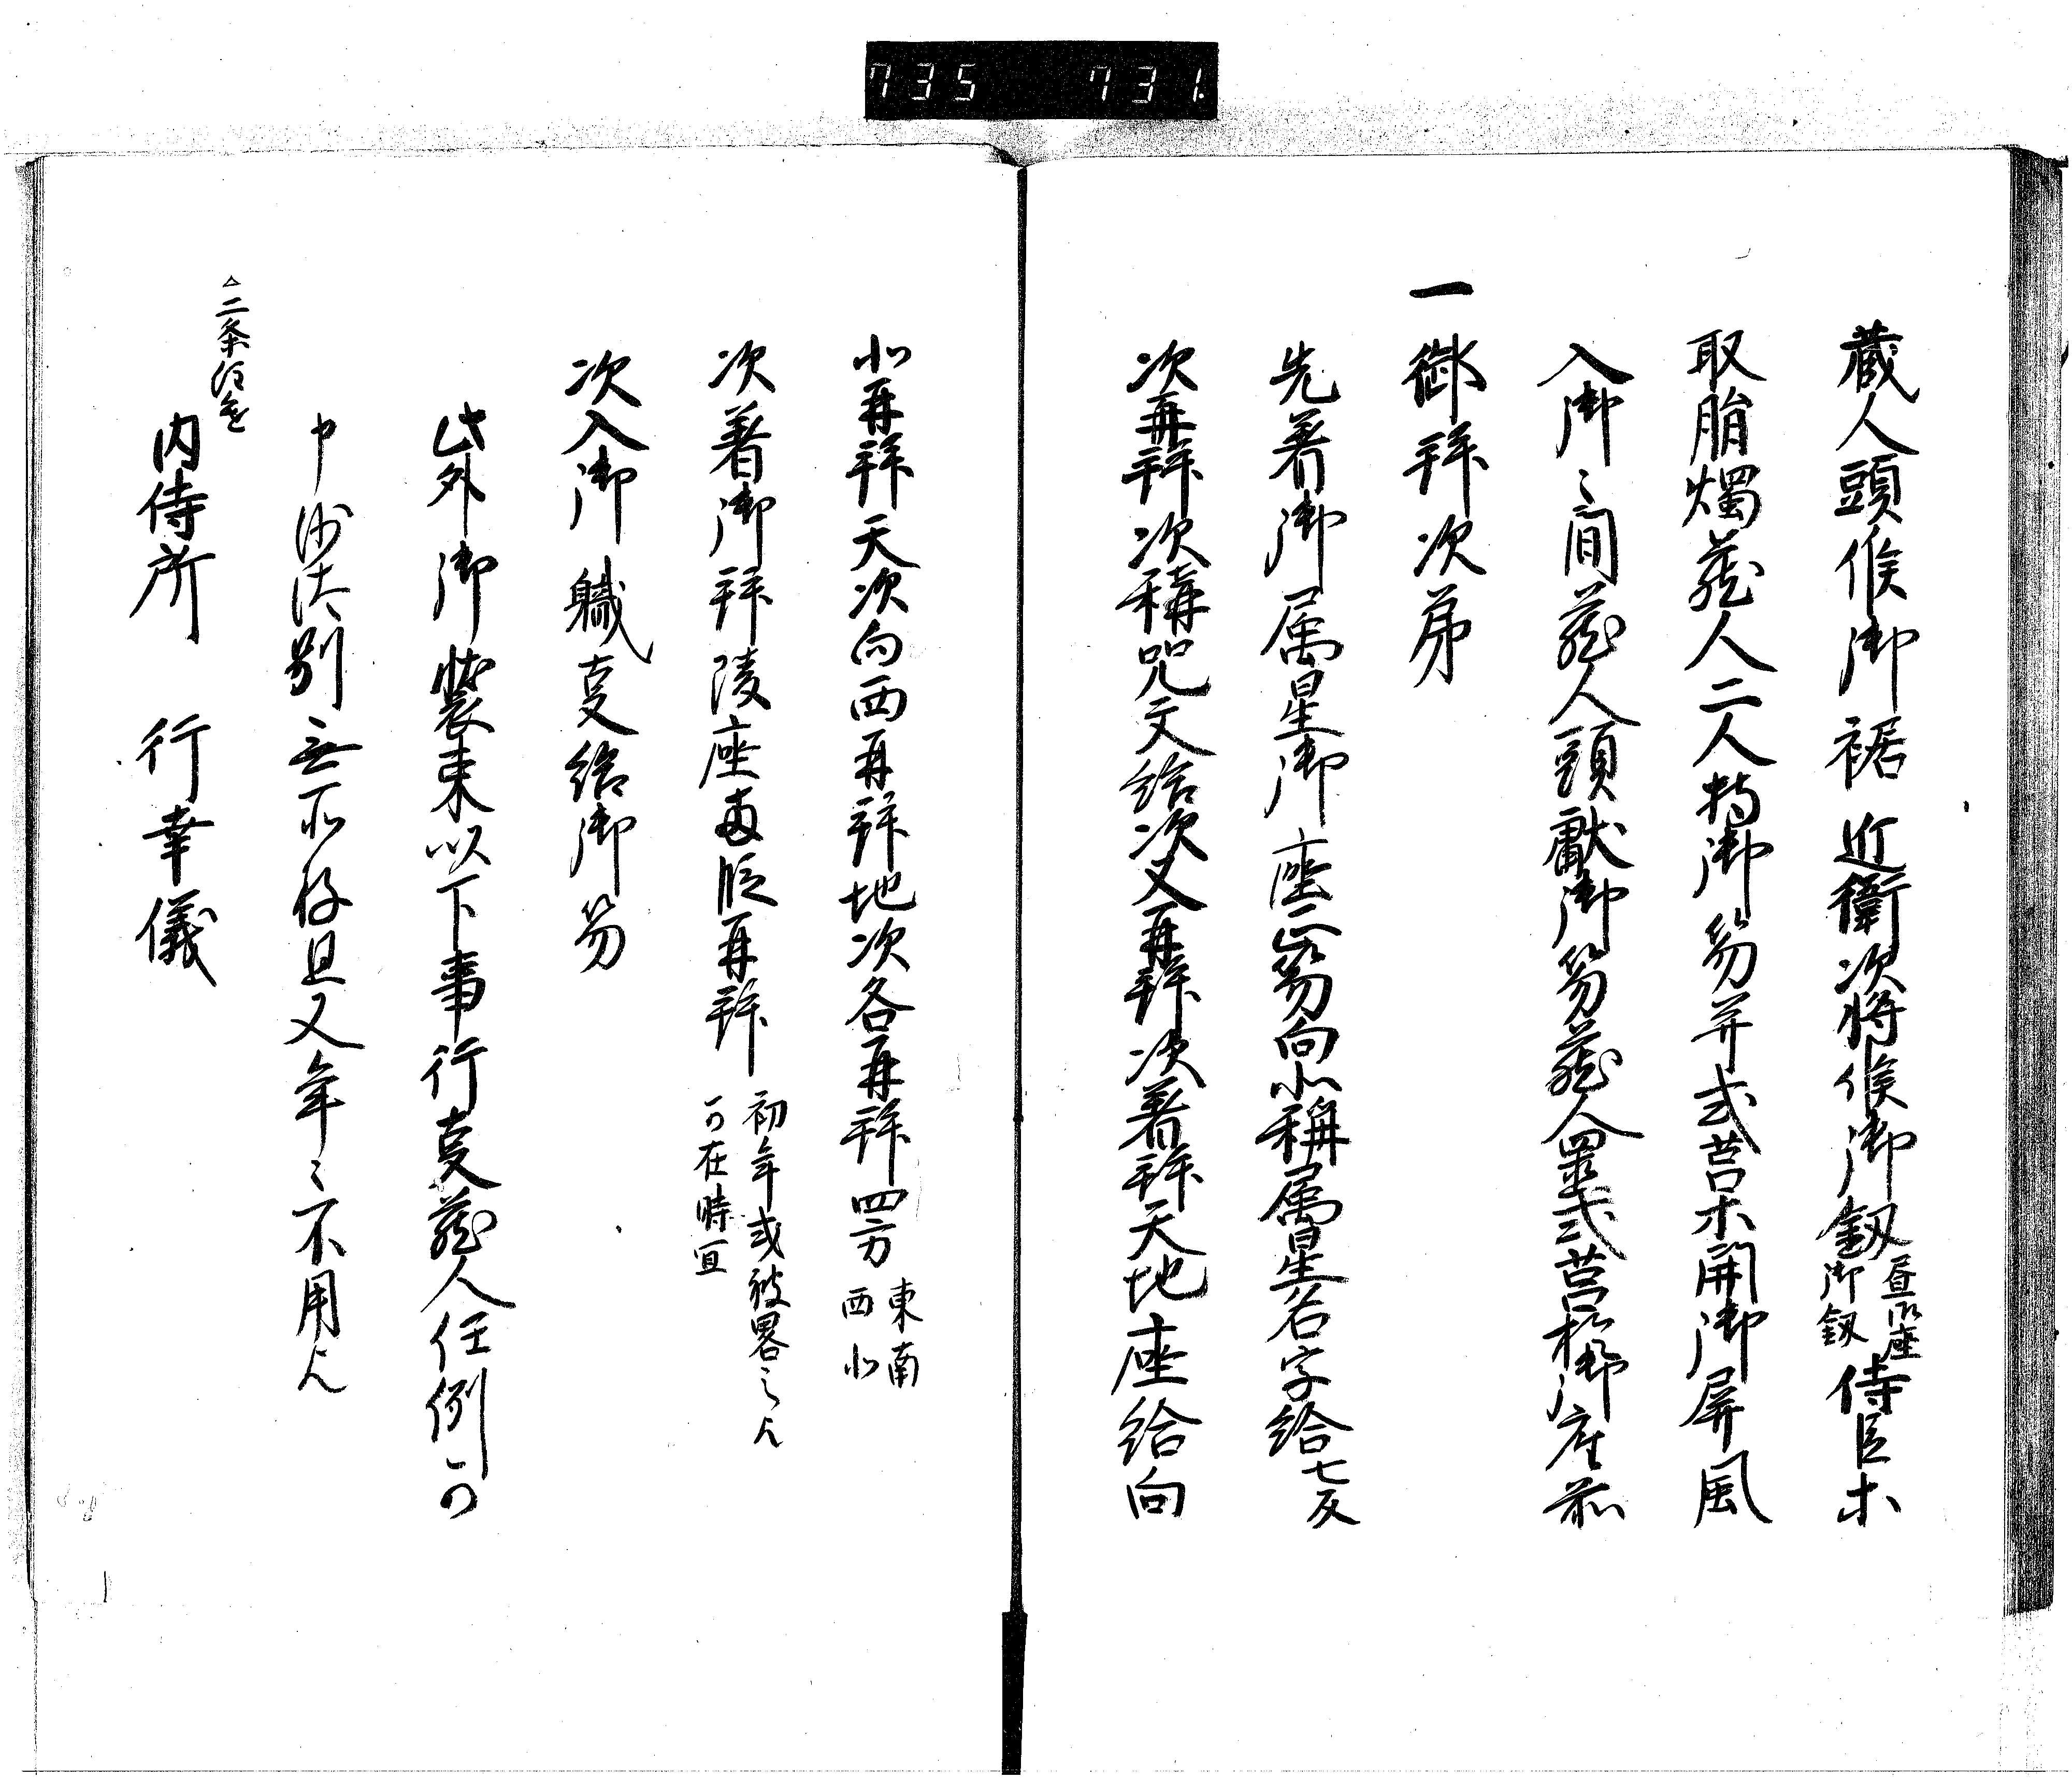 735 731
蔵人頭候御裾近衛次将候御釼昼御座御釼侍臣木
取脂燭蔵人二人持御笏并式莒木開御屏風
入御〻間蔵人頭献御笏蔵人置式莒於御座前
一御拜次第
先著御属星御座正笏向北称属星名字給七反
次再拜次稱咒文給次又再拜次著拜天地座給向
北再拜天次向西再拜地次各再拜四方東南西北
次著御拜陵座両段再拜初年或被畧之歟可在時宜
次入御職事給御笏
此外御装束以下事行事蔵人任例可
申沙汰別無所存且又年〻不用歟
二条
内侍所 行幸儀